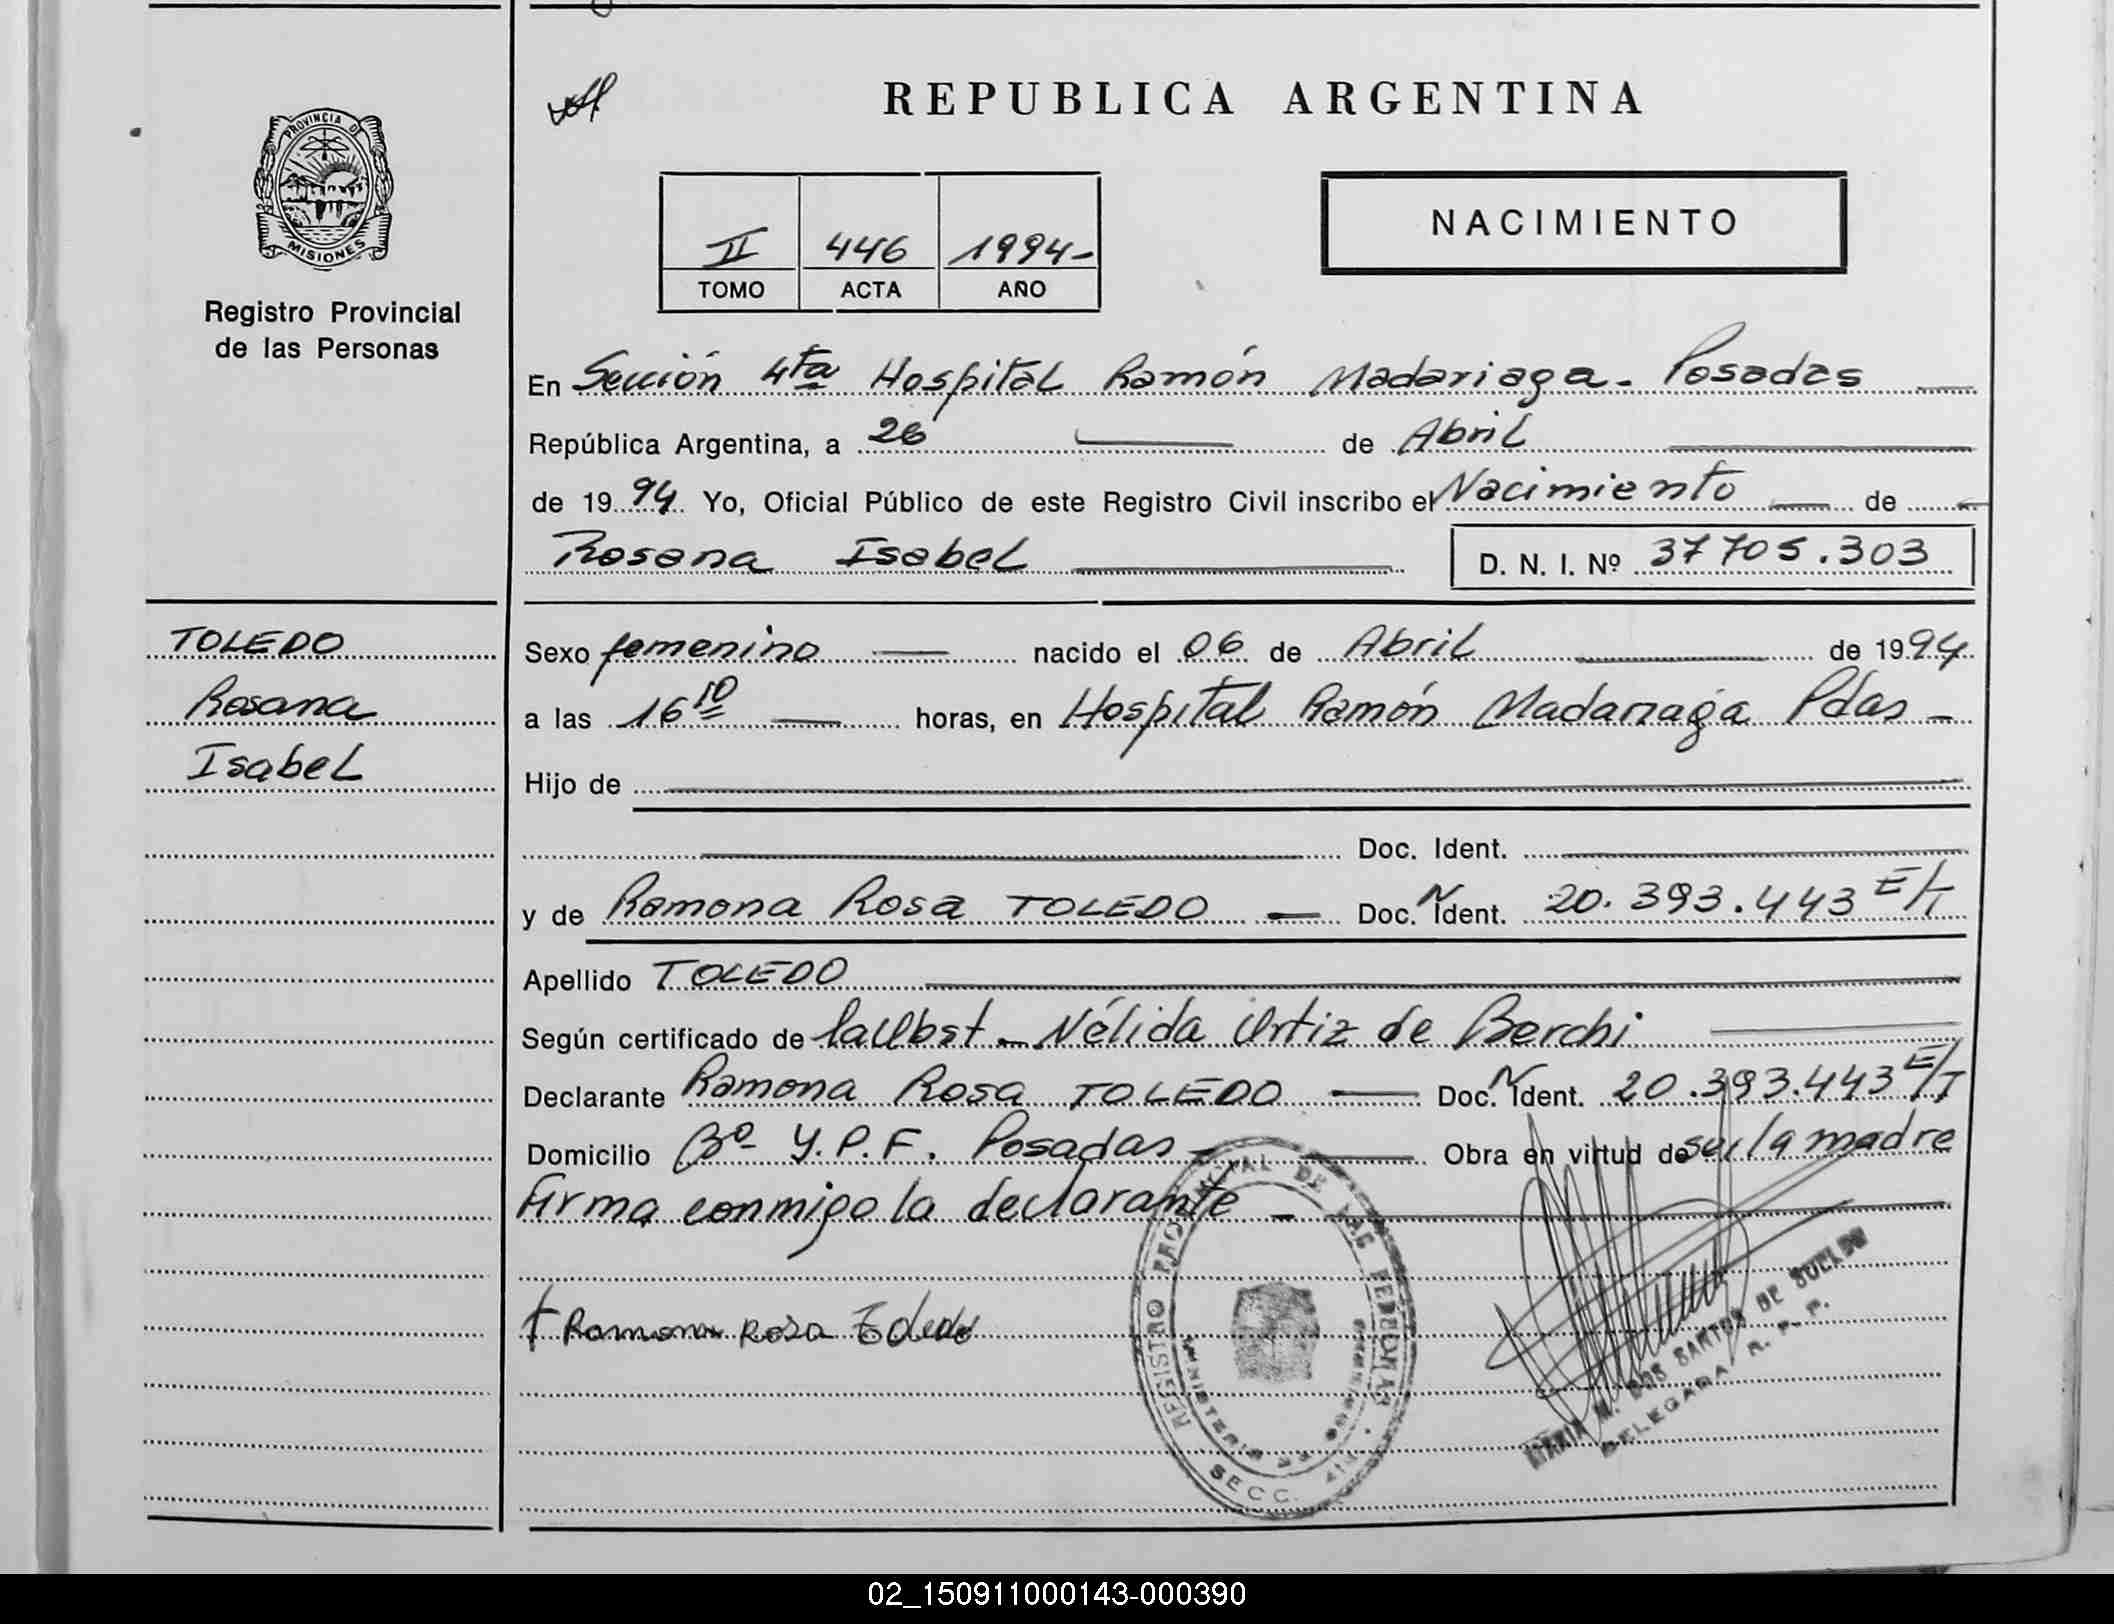 REPUBLICA ARGENTINA
PROVINCIA DE
MISIONES
Registro Provincial
de las Personas
NACIMIENTO
II 446 1994-
TOMO ACTA AÑO
En Sección 4ta Hospital Ramón Madariaga. Posadas
República Argentina, a 26 de Abril
de 1994 Yo, Oficial Público de este Registro Civil inscribo el Nacimiento de
Rosana Isabel D. N. I. Nº 37705.303
TOLEDO
Rosana
Isabel
Sexo femenino nacido el 06 de Abril de 1994
a las 16 10 horas, en Hospital Ramón Madariaga Pdas -
Hijo de
Doc. Ident.
y de Ramona Rosa TOLEDO Doc. N Ident. 20.393.443 E/T
Apellido TOLEDO
Según certificado de la Obst. Nélida Ortiz de Berchi
Declarante Ramona Rosa TOLEDO Doc. N Ident. 20.393.443 E/T
Domicilio Bº Y.P.F. Posadas - Obra en virtud de ser la madre
Firma conmigo la declarante -
Ramona Rosa Toledo
REGISTRO PROVINCIAL DE LAS PERSONAS
MINISTERIO DE GOBIERNO
SECC.
MARIA N. DOS SANTOS DE SUELDO
DELEGADA R. P. P.
02_150911000143-000390